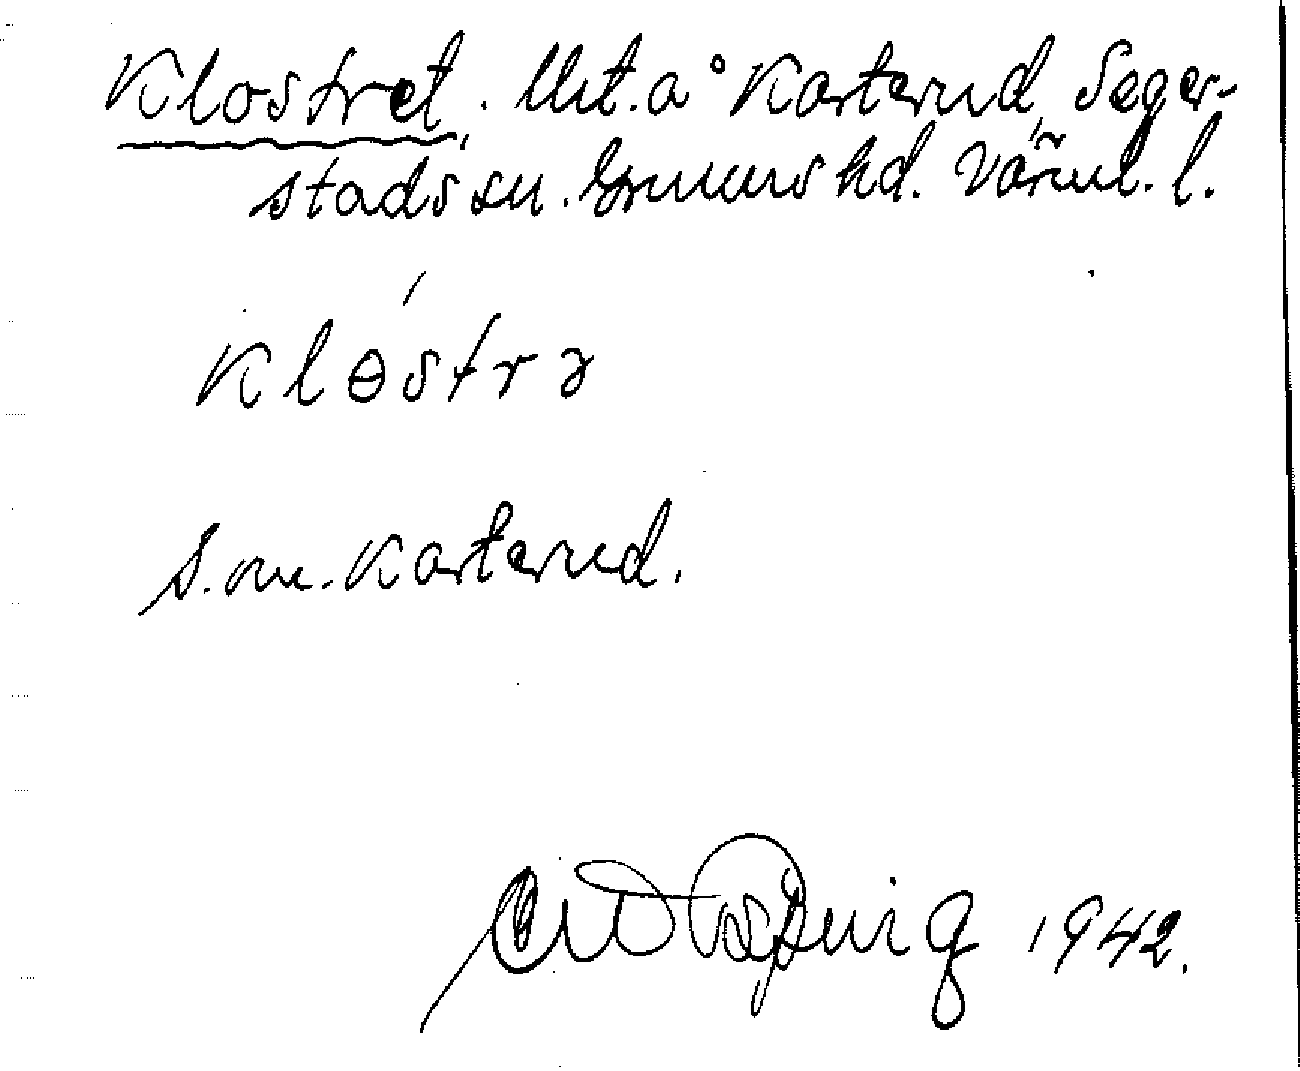 Klostret. Utt. å Karterud, Seger-
stads sn. Grums hd. Värml. l.
Klɵ́strə
S. om. Karterud.
1942.